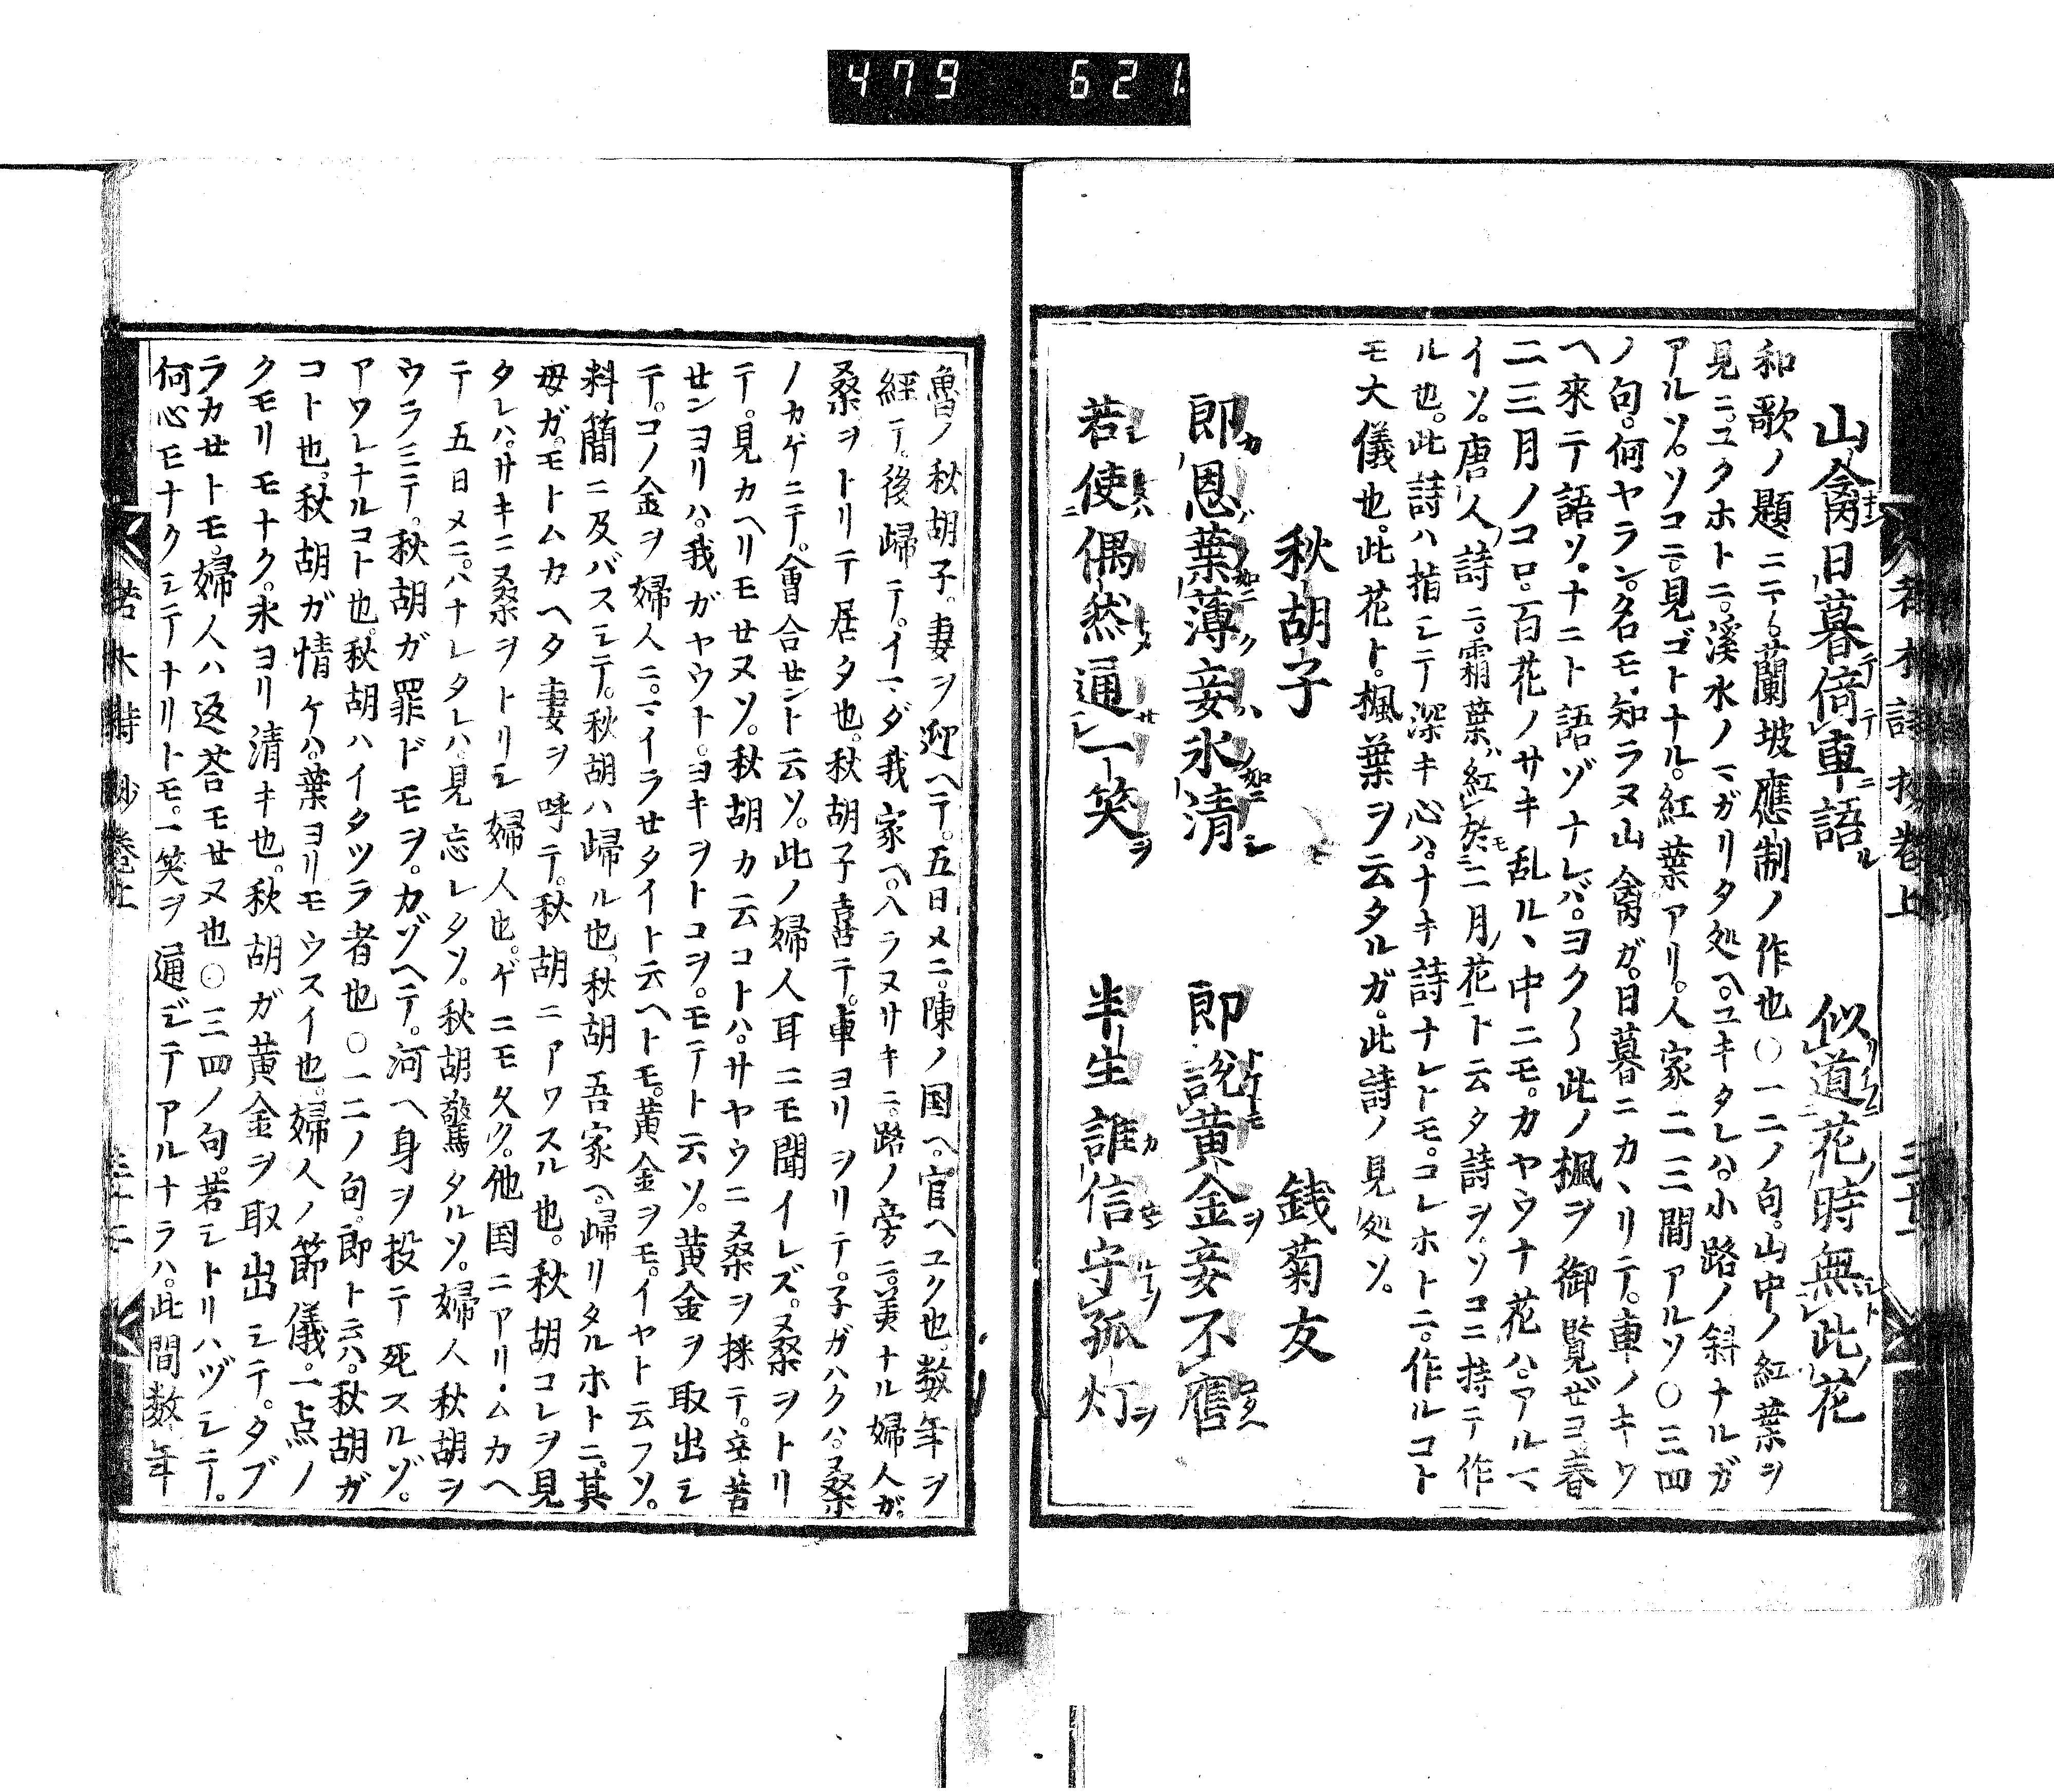 479 621.
山禽日暮倚車語 似道花時無此花
和歌ノ題ニテ蘭坡應制ノ作也○一二ノ句。山中ノ紅葉ヲ
見ニ。ユクホトニ。溪水ノマガリタ処ヘ。ユキタレハ。小路ノ斜ナルガ
アルソ。ソコニ見ゴトナル。紅葉アリ。人家二三間アルソ○三四
ノ句。何ヤラン。名モ知ラヌ山禽ガ。日暮ニカヽリテ。車ノキワ
ヘ來テ語ソ。ナニト語ゾナレバ。ヨク〱此ノ楓ヲ御覧ゼヨ春
二三月ノコロ。百花ノサキ乱ルヽ中ニモ。カヤウナ花ハ。アルマ
イソ。唐人ノ詩ニ霜葉紅於二月花ト云タ詩ヲ。ソコニ持テ作
ル也。此詩ハ指シテ深キ心ハ。ナキ詩ナレトモ。コレホトニ。作ルコト
モ大儀也。此花ト。楓葉ヲ云タルガ。此詩ノ見処ソ。
秋胡子 錢菊友
郎恩葉薄妾氷清 郎説黄金妾不譍
若使偶然通一笑 半生誰信守孤灯
魯ノ秋胡子。妻ヲ迎ヘテ。五日メニ。陳ノ国ヘ。官ヘユク也。数年ヲ
經テ。後歸テ。イマダ我家ヘ。ハラヌサキニ。路ノ旁ニ。美ナル婦人ガ。
桑ヲトリテ居タ也。秋胡子喜テ。車ヨリヲリテ。子ガハクハ。桑
ノカゲニテ。會合セント云ソ。此ノ婦人耳ニモ聞イレズ。桑ヲトリ
テ。見カヘリモセヌソ。秋胡カ云コトハ。サヤウニ桑ヲ採テ。辛苦
センヨリハ。我ガヤウト。ヨキヲトコヲ。モテト云ソ。黄金ヲ取出シ
テ。コノ金ヲ婦人ニ。マイラセタイト云ヘトモ。黄金ヲモ。イヤト云フソ。
料簡ニ及バスシテ。秋胡ハ歸ル也。秋胡吾家ヘ。歸リタルホトニ。其
母ガ。モトムカヘタ妻ヲ呼テ。秋胡ニアワスル也。秋胡コレヲ見
タレハ。サキニ桑ヲトリシ婦人也。ゲニモ久ク。他国ニアリ。ムカヘ
テ五日メニ。ハナレタレハ。見忘レタソ。秋胡驚タルソ。婦人秋胡ヲ
ウラミテ。秋胡ガ罪ドモヲ。カゾヘテ。河ヘ身ヲ投テ死スルゾ。
アワレナルコト也。秋胡ハイタツラ者也○一二ノ句。郎ト云ハ。秋胡ガ
コト也。秋胡ガ情ケハ。葉ヨリモウスイ也。婦人ノ節儀。一点ノ
クモリモナク。氷ヨリ清キ也。秋胡ガ黄金ヲ取出シテ。タブ
ラカセトモ。婦人ハ返荅モセヌ也○三四ノ句。若シトリハヅシテ。
何心モナクシテナリトモ。一笑ヲ通ジテアルナラハ。此間数年